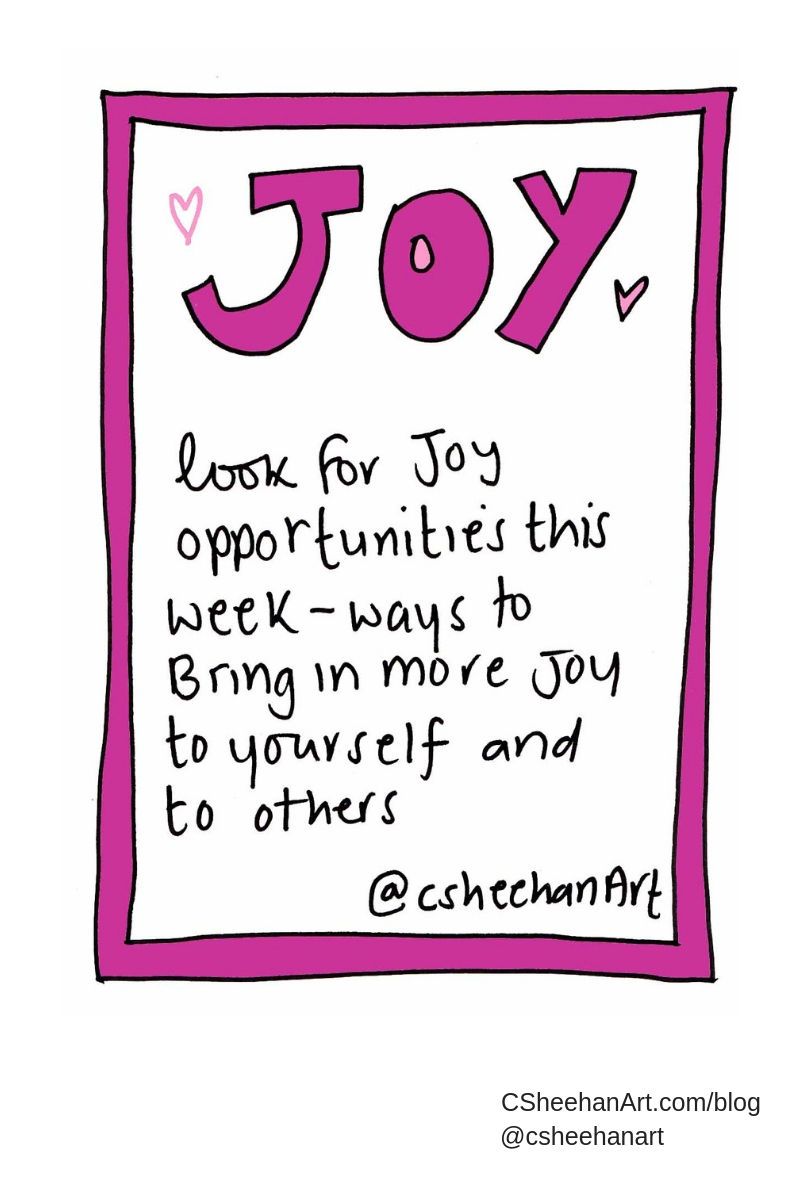 JOY
look for Joy
opportunities this
week - ways to
Bring in more Joy
to yourself and
to others
@csheehanArt
CSheehanArt.com/blog
@csheehanart